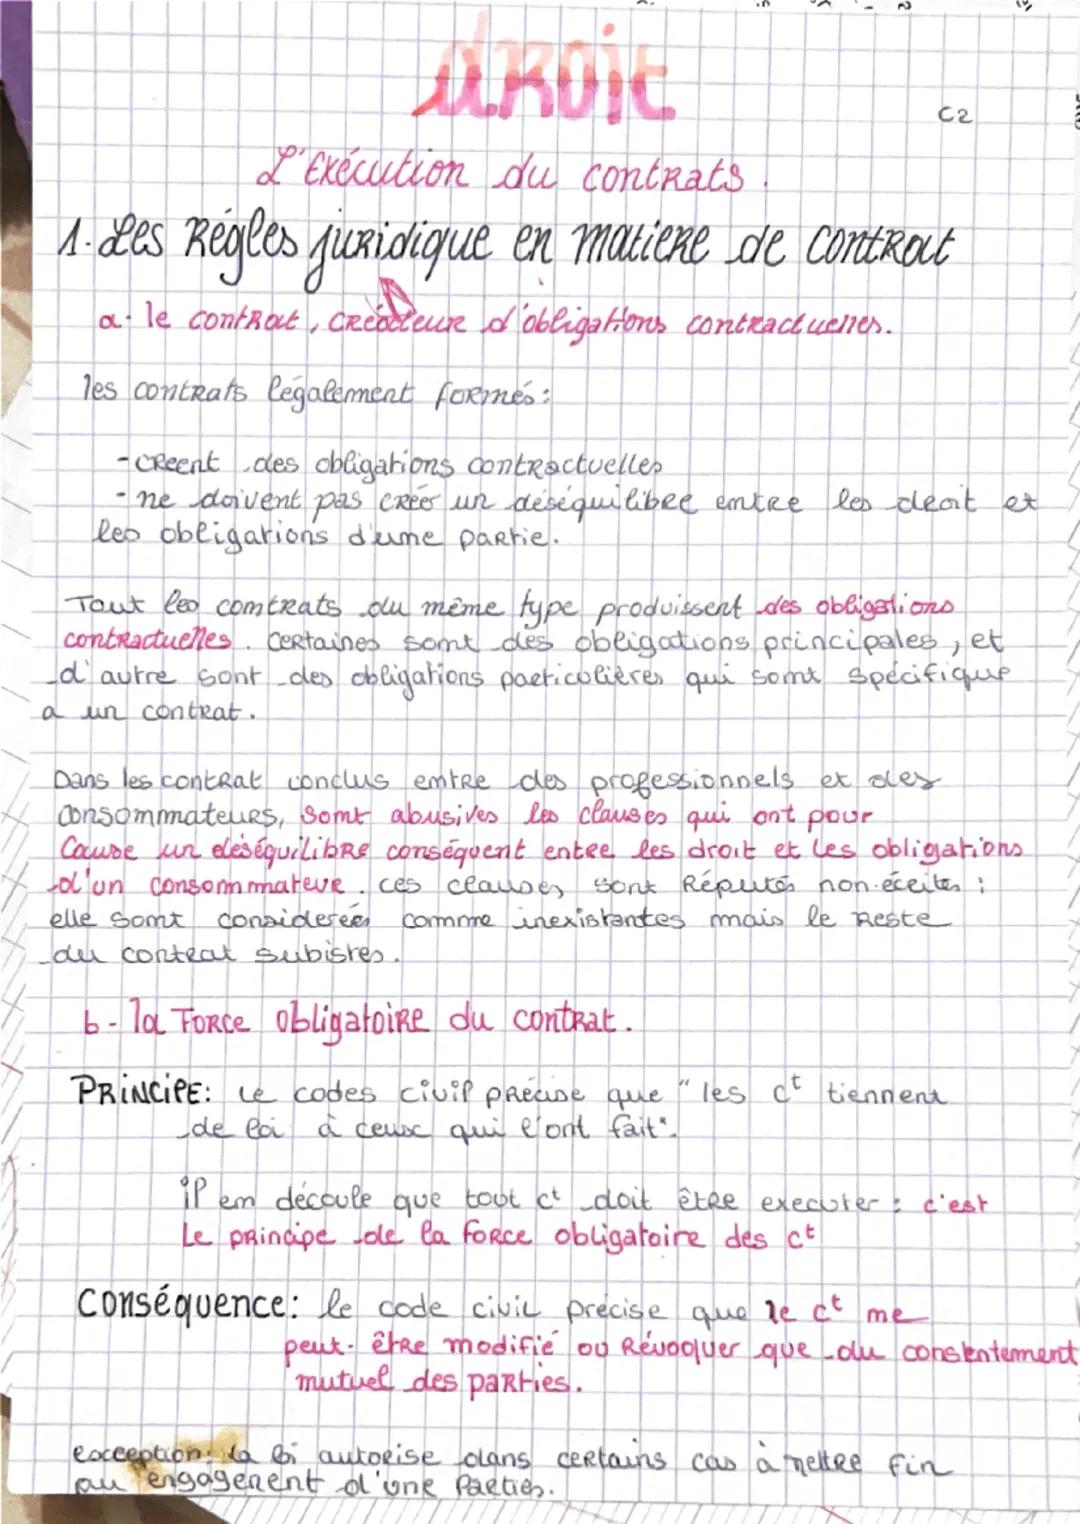 droit
C2
L'Exécution du contrats.
1. Les Régles juridique en matiere de contrat
a. le contrat, créateur d'obligations contractuelles.
les contrats légalement formés :
- créent des obligations contractuelles
- ne doivent pas créér un déséquilibre entre les droit et
les obligations d'une partie.
Tout les contrats du même type produissent des obligations
contractuelles. Certaines sont des obligations principales, et
d'autre sont des obligations particulières qui sont spécifique
a un contrat.
Dans les contrat conclus entre des professionnels et des
consommateurs, sont abusives les clauses qui ont pour
Cause un déséquilibre conséquent entre les droit et les obligations
d'un consommateur. ces clauses sont Réputés non-écrites :
elle sont considerées comme inexistantes mais le reste
du contrat subistes.
b - la Force obligatoire du contrat.
PRINCIPE : Le codes civil précise que "les ct tiennent
de loi à ceux qui l'ont fait".
il en découle que tout ct doit être executer : c'est
Le principe de la force obligatoire des ct
Conséquence : le code civil précise que le ct ne
peut-être modifié ou Révoquer que du consentement
mutuel des parties.
exception : la loi autorise dans certains cas à mettre fin
au engagement d'une Parties.